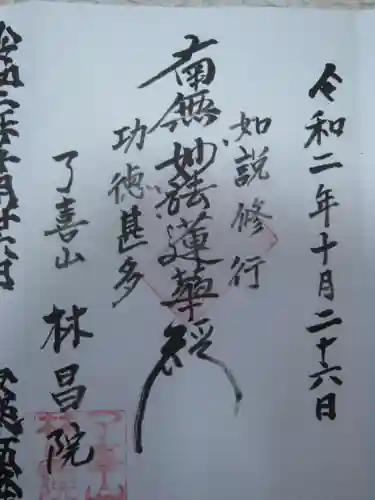 令和二年十月二十六日
如説修行
南無妙法蓮華経
功徳甚多
了喜山 林昌院